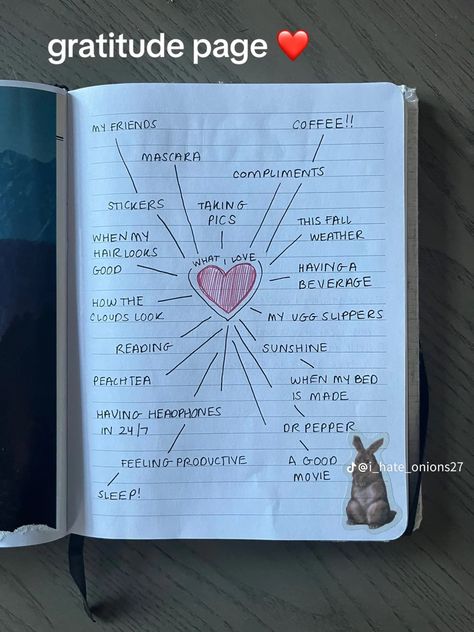 gratitude page ❤️
MY FRIENDS
COFFEE!!
MASCARA
COMPLIMENTS
STICKERS
TAKING
PICS
THIS FALL
WEATHER
WHEN MY
HAIR LOOKS
GOOD
WHAT I LOVE
HAVING A
BEVERAGE
HOW THE
CLOUDS LOOK
MY UGG SLIPPERS
READING
SUNSHINE
PEACH TEA
WHEN MY BED
IS MADE
HAVING HEADPHONES
IN 24/7
DR PEPPER
FEELING PRODUCTIVE
A GOOD
MOVIE
SLEEP!
@i_hate_onions27